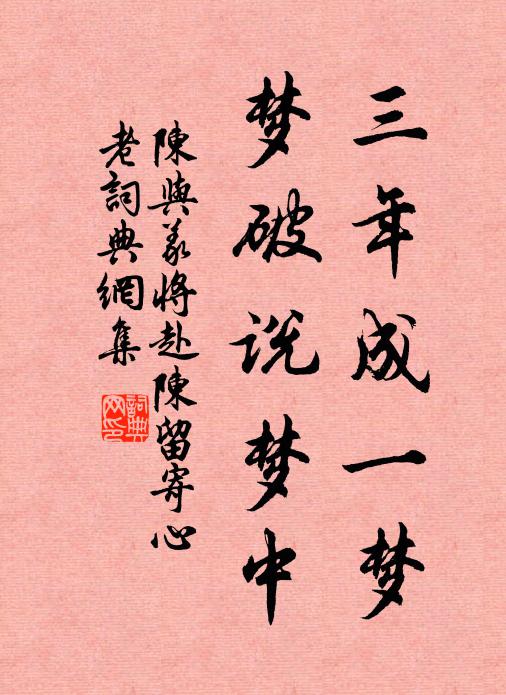 三年成一梦
梦破说梦中
陳與義将赴陳留寄心
老詞典網集
詞典网印